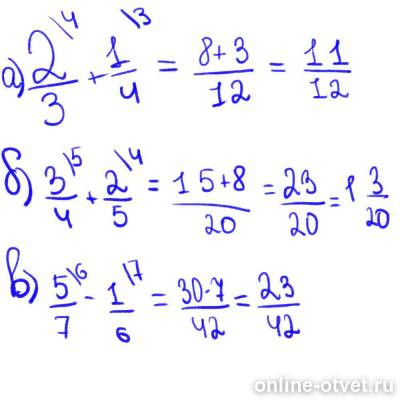 а) 2/3 \4 + 1/4 \3 = 8+3/12 = 11/12
б) 3/4 \5 + 2/5 \4 = 15+8/20 = 23/20 = 1 3/20
в) 5/7 \6 - 1/6 \7 = 30-7/42 = 23/42
online-otvet.ru